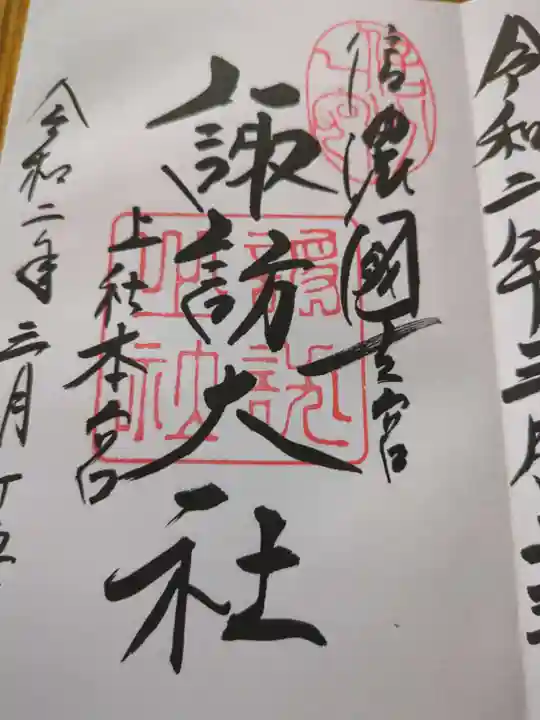 令和二年三月十三
信濃國一之宮
諏訪大社
上社本宮
令和二年三月十五